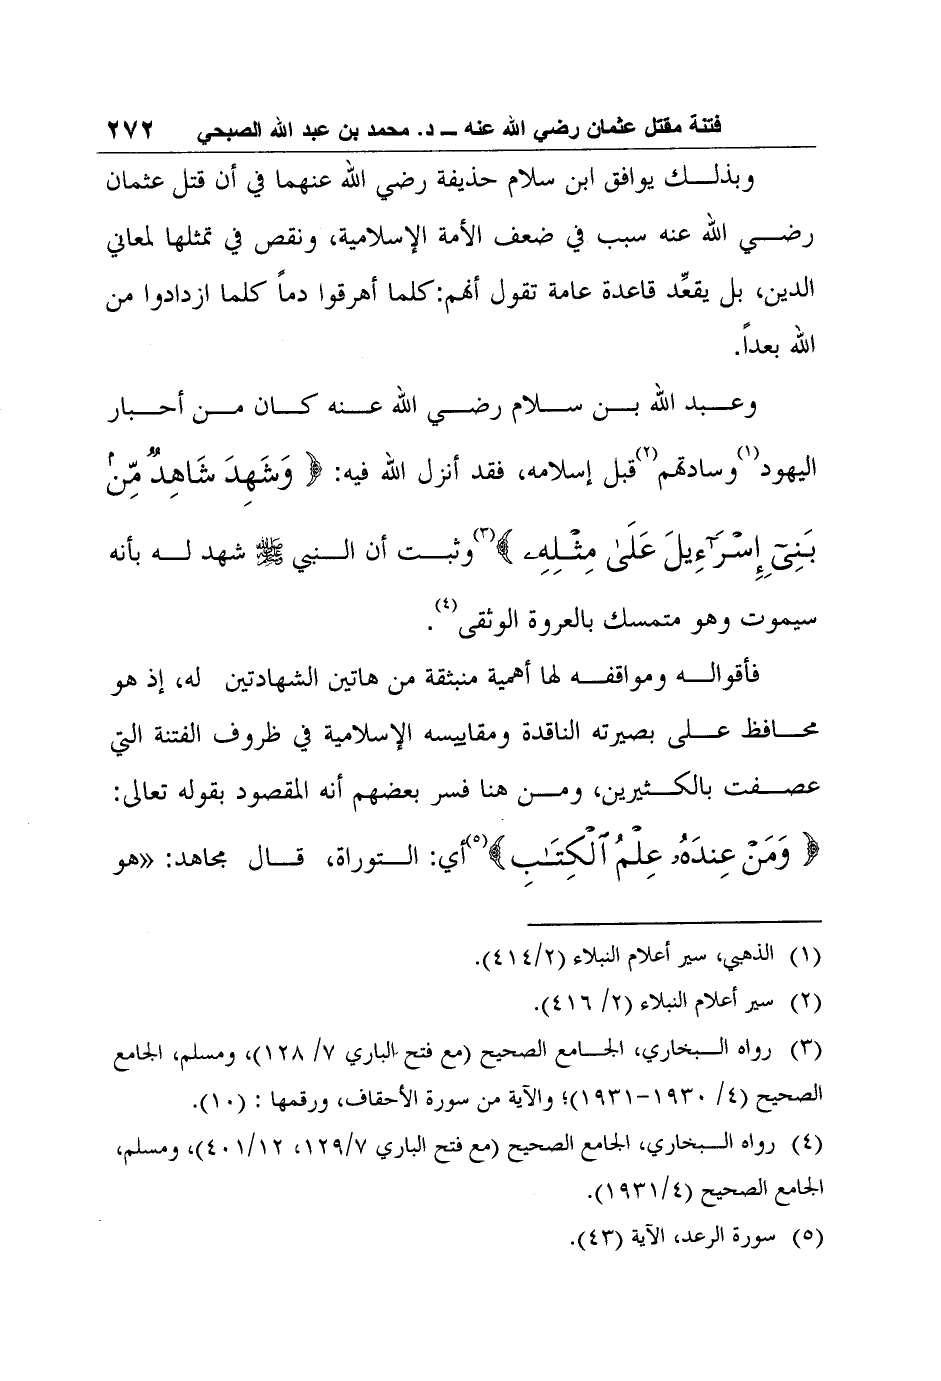 فتنة مقتل عثمان رضي الله عنه ــ د. محمد بن عبد الله الصبحي ٢٧٢
وبذلك يوافق ابن سلام حذيفة رضي الله عنهما في أن قتل عثمان
رضي الله عنه سبب في ضعف الأمة الإسلامية، ونقص في تمثلها لمعاني
الدين، بل يقعِّد قاعدة عامة تقول أنهم:كلما أهرقوا دماً كلما ازدادوا من
الله بعداً.
وعبد الله بن سلام رضي الله عنه كان من أحبار
اليهود(١)وسادتهم(٢)قبل إسلامه، فقد أنزل الله فيه: ﴿ وَشَهِدَ شَاهِدٌ مِّنۢ
بَنِىٓ إِسْرَٰٓءِيلَ عَلَىٰ مِثْلِهِۦ ﴾(٣)وثبت أن النبي ﷺ شهد له بأنه
سيموت وهو متمسك بالعروة الوثقى(٤).
فأقواله ومواقفه لها أهمية منبثقة من هاتين الشهادتين له، إذ هو
محافظ على بصيرته الناقدة ومقاييسه الإسلامية في ظروف الفتنة التي
عصفت بالكثيرين، ومن هنا فسر بعضهم أنه المقصود بقوله تعالى:
﴿ وَمَنْ عِندَهُۥ عِلْمُ ٱلْكِتَـٰبِ ﴾(٥)أي: التوراة، قال مجاهد: «هو
(١) الذهبي، سير أعلام النبلاء (٤١٤/٢).
(٢) سير أعلام النبلاء (٢/ ٤١٦).
(٣) رواه البخاري، الجامع الصحيح (مع فتح الباري ٧/ ١٢٨)، ومسلم، الجامع
الصحيح (٤/ ١٩٣٠-١٩٣١)؛ والآية من سورة الأحقاف، ورقمها : (١٠).
(٤) رواه البخاري، الجامع الصحيح (مع فتح الباري ١٢٩/٧، ٤٠١/١٢)، ومسلم،
الجامع الصحيح (١٩٣١/٤).
(٥) سورة الرعد، الآية (٤٣).